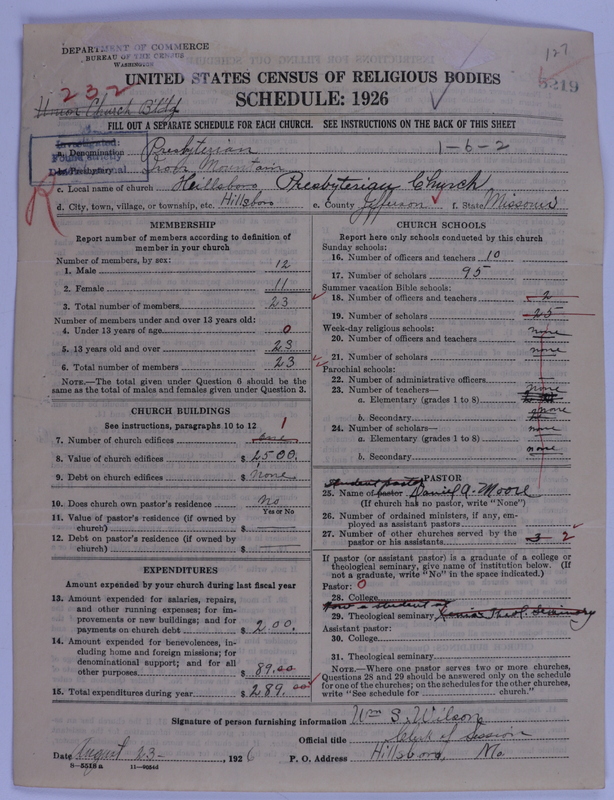 DEPARTMENT OF COMMERCE
BUREAU OF THE CENSUS
WASHINGTON
127
5219
UNITED STATES CENSUS OF RELIGIOUS BODIES
232
SCHEDULE: 1926
Union Church Bldg
FILL OUT A SEPARATE SCHEDULE FOR EACH CHURCH. SEE INSTRUCTIONS ON THE BACK OF THIS SHEET
a. Denomination Presbyterian 1-6-2
b. Presbytery Iron Mountain
c. Local name of church Hillsboro Presbyterian Church
d. City, town, village, or township, etc. Hillsboro e. County Jefferson f. State Missouri
R
MEMBERSHIP
Report number of members according to definition of
member in your church
Number of members, by sex:
1. Male 12
2. Female 11
3. Total number of members 23
Number of members under and over 13 years old:
4. Under 13 years of age 0
5. 13 years old and over 23
6. Total number of members 23
NOTE.—The total given under Question 6 should be
the same as the total of males and females given under Question 3.
CHURCH BUILDINGS
See instructions, paragraphs 10 to 12 1
7. Number of church edifices one
8. Value of church edifices $ 2500.
9. Debt on church edifices $ none
10. Does church own pastor's residence No
Yes or No
11. Value of pastor's residence (if owned by
church) $
12. Debt on pastor's residence (if owned by
church) $
EXPENDITURES
Amount expended by your church during last fiscal year
13. Amount expended for salaries, repairs,
and other running expenses; for im-
provements or new buildings; and for
payments on church debt $ 2.00.
14. Amount expended for benevolences, in-
cluding home and foreign missions; for
denominational support; and for all
other purposes $ 89.00
15. Total expenditures during year $ 289.00
CHURCH SCHOOLS
Report here only schools conducted by this church
Sunday schools:
16. Number of officers and teachers 10
17. Number of scholars 95
Summer vacation Bible schools:
18. Number of officers and teachers 2
19. Number of scholars 25
Week-day religious schools:
20. Number of officers and teachers none
21. Number of scholars none
Parochial schools:
22. Number of administrative officers
23. Number of teachers— none
a. Elementary (grades 1 to 8)
b. Secondary none
24. Number of scholars—
a. Elementary (grades 1 to 8) none
b. Secondary none
Student pastor PASTOR
25. Name of pastor Daniel A. Moore
(If church has no pastor, write "None")
26. Number of ordained ministers, if any, em-
ployed as assistant pastors
27. Number of other churches served by the
pastor or his assistants 3 2
If pastor (or assistant pastor) is a graduate of a college or
theological seminary, give name of institution below. (If
not a graduate, write "No" in the space indicated.)
Pastor: 0
28. College
now a student at
29. Theological seminary Xenia Theol. Seminary
Assistant pastor:
30. College
31. Theological seminary
NOTE.—Where one pastor serves two or more churches,
Questions 28 and 29 should be answered only on the schedule
for one of the churches; on the schedules for the other churches,
write "See schedule for church."
Signature of person furnishing information Wm S. Wilson
Official title Clerk of Session
Date August 23- , 1926 P. O. Address Hillsboro, Mo
8—5518 a 11—9034d